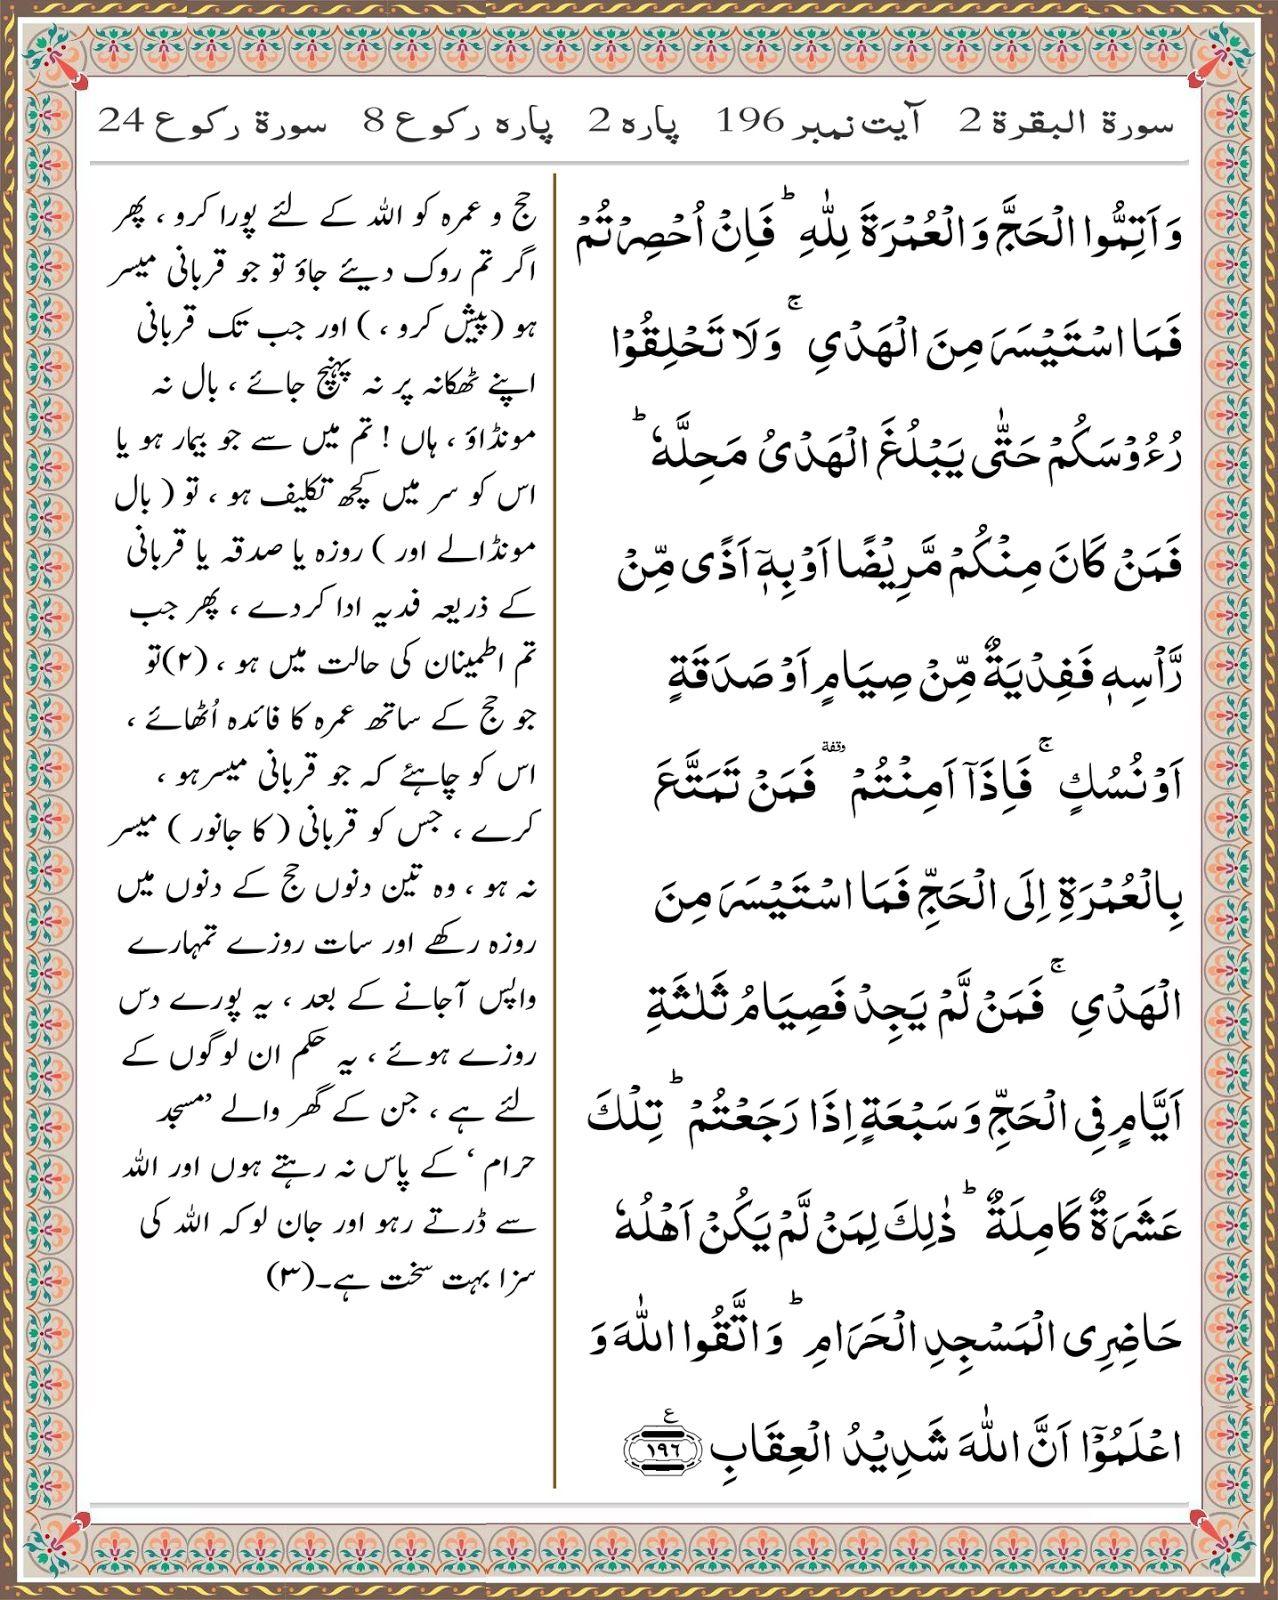 سورۃ البقرۃ 2 آیت نمبر 196 پارہ 2 پارہ رکوع 8 سورۃ رکوع 24
وَاَتِمُّوا الْحَجَّ وَالْعُمْرَةَ لِلّٰهِ ؕ فَاِنْ اُحْصِرْتُمْ
فَمَا اسْتَيْسَرَ مِنَ الْهَدْىِ ۚ وَلَا تَحْلِقُوْا
رُءُوْسَكُمْ حَتّٰى يَبْلُغَ الْهَدْىُ مَحِلَّهٗ ؕ
فَمَنْ كَانَ مِنْكُمْ مَّرِيْضًا اَوْ بِهٖۤ اَذًى مِّنْ
رَّاْسِهٖ فَفِدْيَةٌ مِّنْ صِيَامٍ اَوْ صَدَقَةٍ
اَوْ نُسُكٍ ۚ فَاِذَاۤ اَمِنْتُمْ وقفة فَمَنْ تَمَتَّعَ
بِالْعُمْرَةِ اِلَى الْحَجِّ فَمَا اسْتَيْسَرَ مِنَ
الْهَدْىِ ۚ فَمَنْ لَّمْ يَجِدْ فَصِيَامُ ثَلٰثَةِ
اَيَّامٍ فِى الْحَجِّ وَ سَبْعَةٍ اِذَا رَجَعْتُمْ ؕ تِلْكَ
عَشَرَةٌ كَامِلَةٌ ؕ ذٰلِكَ لِمَنْ لَّمْ يَكُنْ اَهْلُهٗ
حَاضِرِى الْمَسْجِدِ الْحَرَامِ ؕ وَاتَّقُوا اللّٰهَ وَ
اعْلَمُوْۤا اَنَّ اللّٰهَ شَدِيْدُ الْعِقَابِ ع ۱۹۶
حج و عمرہ کو اللہ کے لئے پورا کرو ، پھر
اگر تم روک دیئے جاؤ تو جو قربانی میسر
ہو (پیش کرو ، ) اور جب تک قربانی
اپنے ٹھکانہ پر نہ پہنچ جائے ، بال نہ
مونڈاؤ ، ہاں ! تم میں سے جو بیمار ہو یا
اس کو سر میں کچھ تکلیف ہو ، تو ( بال
مونڈالے اور ) روزہ یا صدقہ یا قربانی
کے ذریعہ فدیہ ادا کردے ، پھر جب
تم اطمینان کی حالت میں ہو ، (۲)تو
جو حج کے ساتھ عمرہ کا فائدہ اُٹھائے ،
اس کو چاہئے کہ جو قربانی میسرہو ،
کرے ، جس کو قربانی ( کا جانور ) میسر
نہ ہو ، وہ تین دنوں حج کے دنوں میں
روزہ رکھے اور سات روزے تمہارے
واپس آجانے کے بعد ، یہ پورے دس
روزے ہوئے ، یہ حکم ان لوگوں کے
لئے ہے ، جن کے گھر والے ’مسجد
حرام ‘ کے پاس نہ رہتے ہوں اور اللہ
سے ڈرتے رہو اور جان لو کہ اللہ کی
سزا بہت سخت ہے۔(۳)